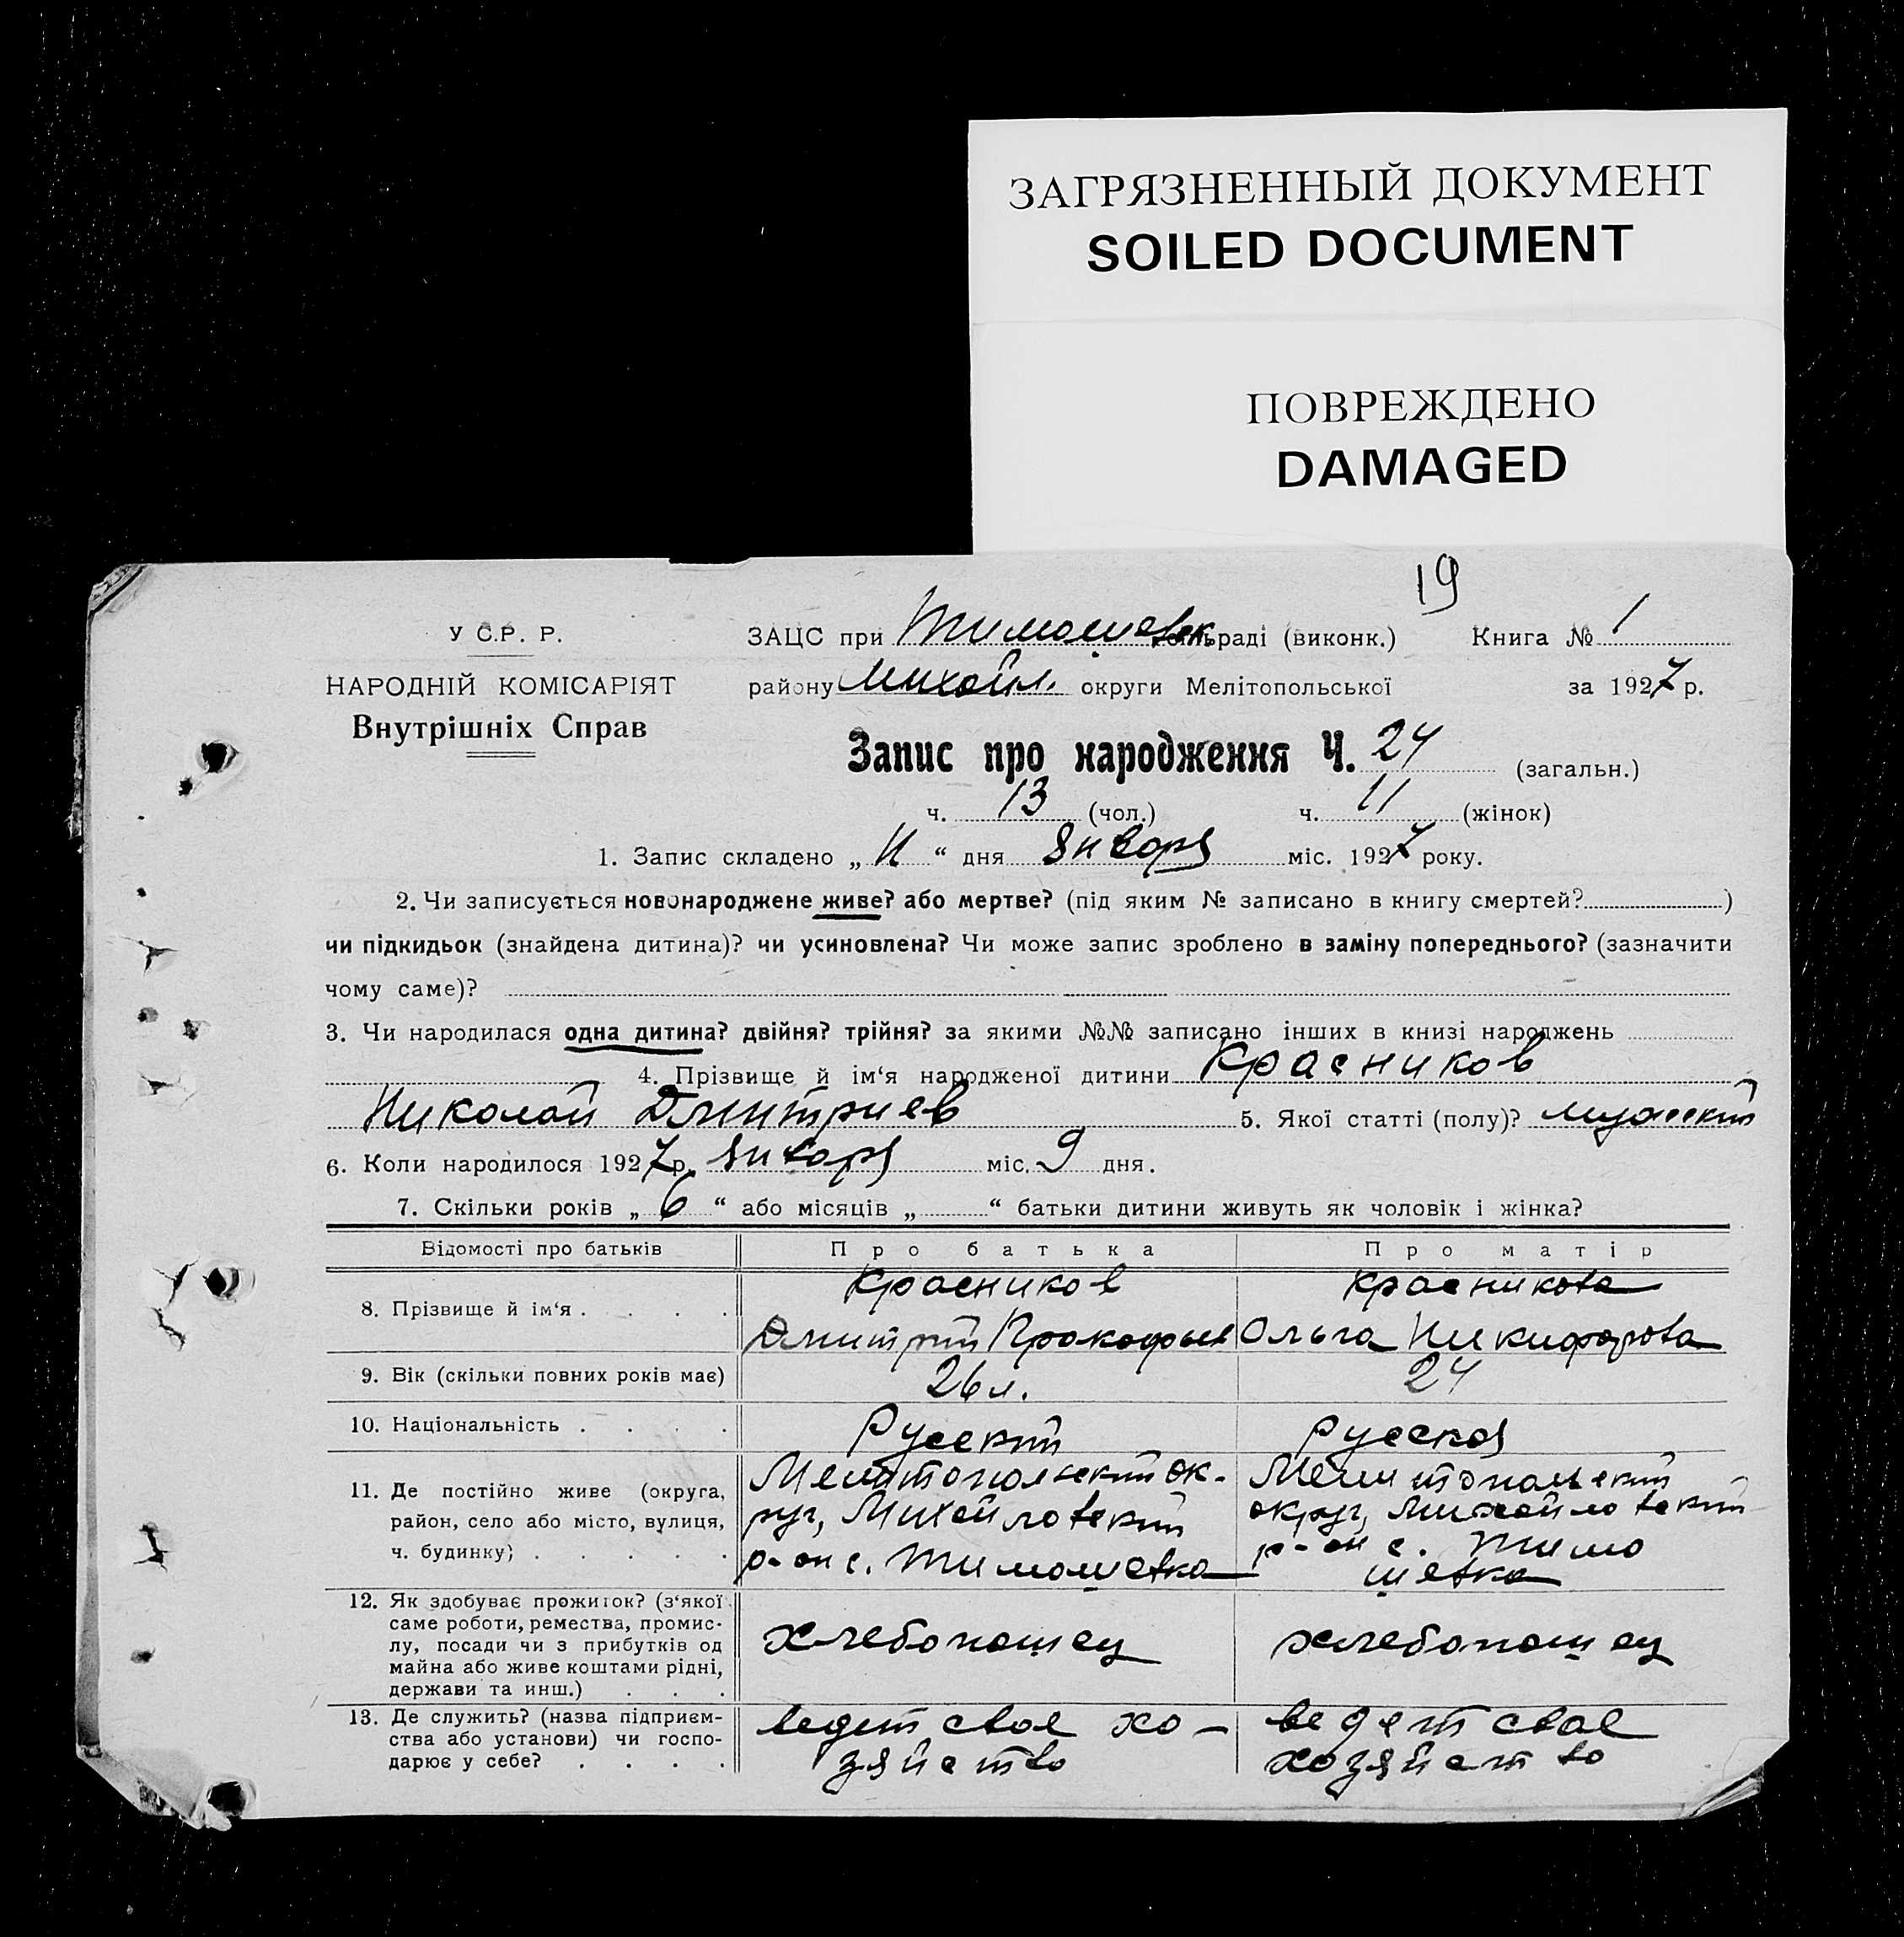 ЗАГРЯЗНЕННЫЙ ДОКУМЕНТ
SOILED DOCUMENT
ПОВРЕЖДЕНО
DAMAGED
19
У С.Р. Р.
НАРОДНІЙ КОМІСАРІЯТ
Внутрішніх Справ
ЗАЦС при Тимошевск. сільраді (виконк.) Книга № 1
району Михайл. округи Мелітопольської за 1927 р.
Запис про народження Ч. 24 (загальн.)
ч. 13 (чол.) ч. 11 (жінок)
1. Запис складено „ 11 “ дня Января міс. 1927 року.
2. Чи записується новонароджене живе? або мертве? (під яким № записано в книгу смертей? )
чи підкидьок (знайдена дитина)? чи усиновлена? Чи може запис зроблено в заміну попереднього? (зазначити
чому саме)?
3. Чи народилася одна дитина? двійня? трійня? за якими №№ записано інших в книзі народжень
4. Прізвище й ім‘я народженої дитини Красников
Николай Дмитриев 5. Якої статті (полу)? мужский
6. Коли народилося 1927 р. Января міс. 9 дня.
7. Скільки років „ 6 “ або місяців „ “ батьки дитини живуть як чоловік і жінка?
Відомості про батьків Про батька Про матір
8. Прізвище й ім‘я . . . .
Красников
Дмитрий Прокофьев
Красникова
Ольга Никифорова
9. Вік (скільки повних років має) 26 л. 24
10. Національність . . . . Русский Русская
11. Де постійно живе (округа,
район, село або місто, вулиця,
ч. будинку) . . . . .
Мелитопольский ок-
руг, Михайловский
р-он с. Тимошевка
Мелитопольский
округ, Михайловский
р-он с. Тимо
шевка
12. Як здобуває прожиток? (з‘якої
саме роботи, ремества, промис-
лу, посади чи з прибутків од
майна або живе коштами рідні,
держави та инш.) . . .
хлебопашец
хлебопашец
13. Де служить? (назва підприєм-
ства або установи) чи госпо-
дарює у себе? . . . .
ведет свое хо-
зяйство
ведет свое
хозяйство